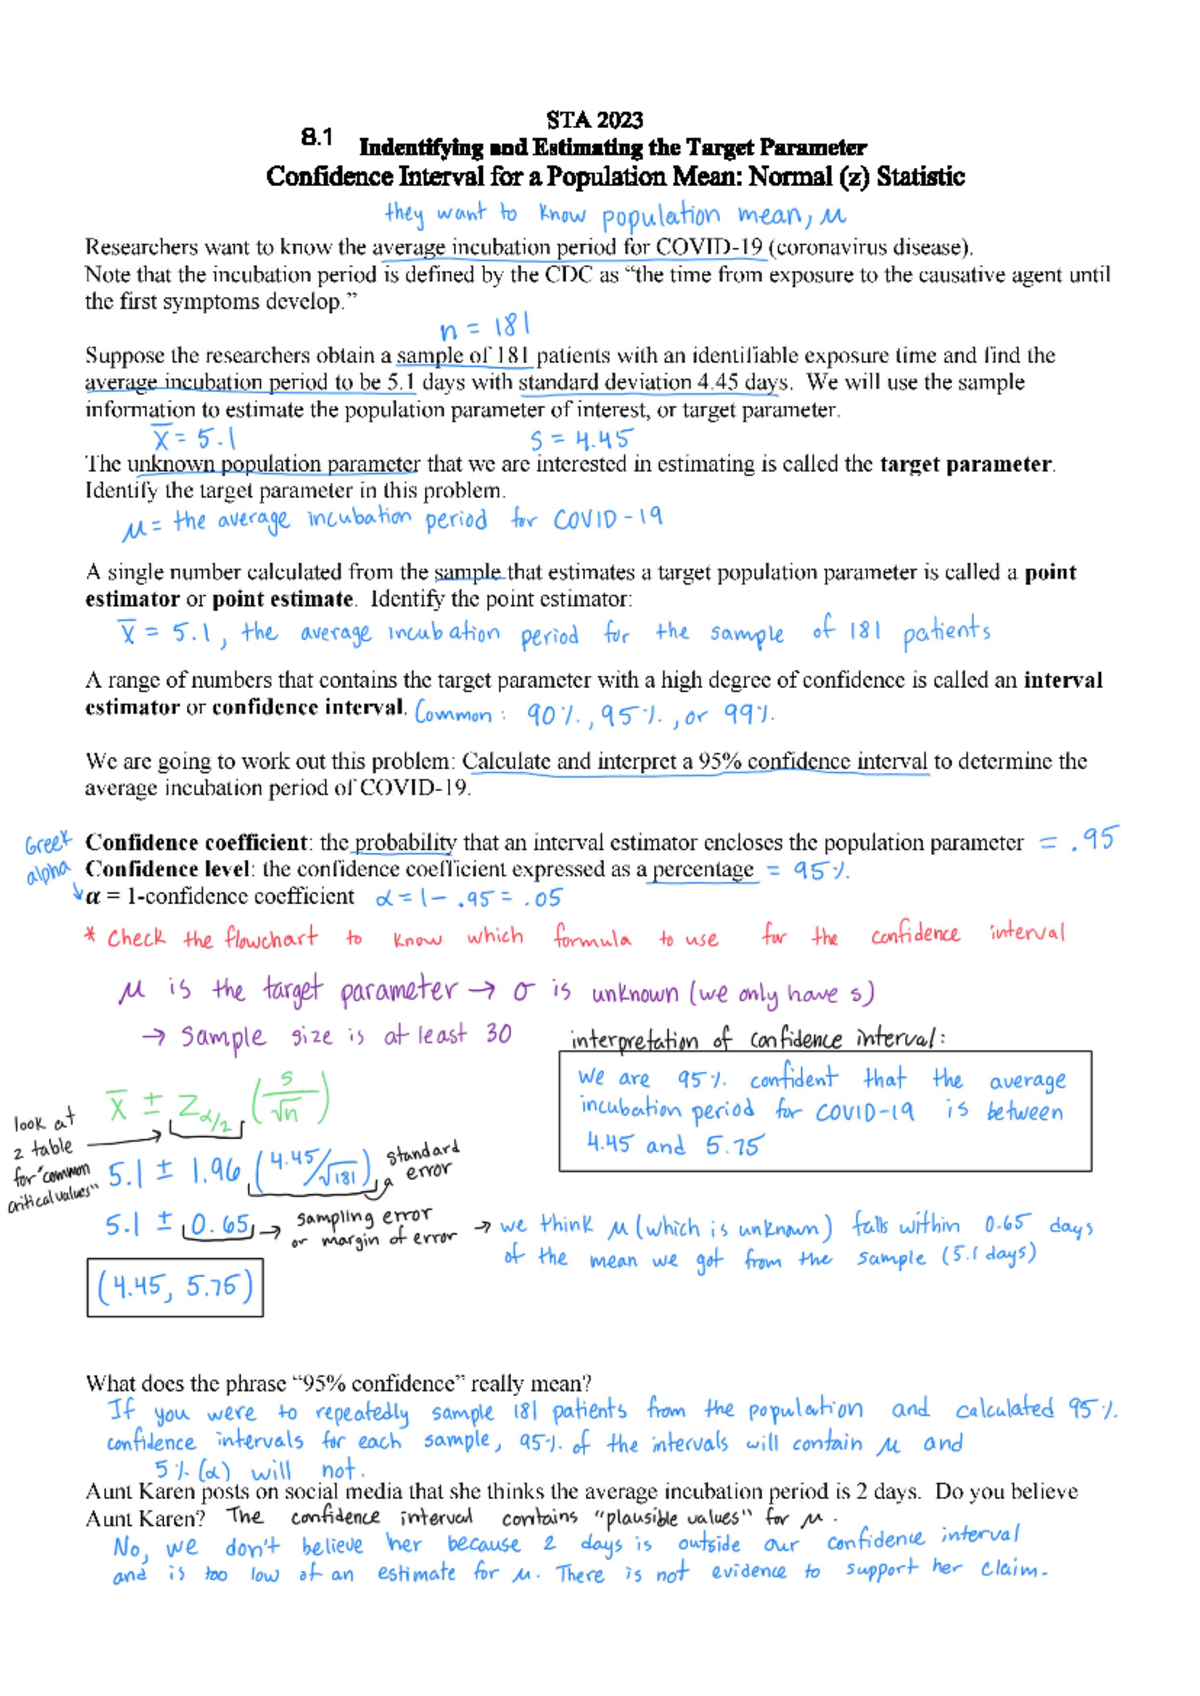 STA 2023
8.1 Indentifying and Estimating the Target Parameter
Confidence Interval for a Population Mean: Normal (z) Statistic
they want to know population mean, μ
Researchers want to know the average incubation period for COVID-19 (coronavirus disease).
Note that the incubation period is defined by the CDC as “the time from exposure to the causative agent until
the first symptoms develop.”
n = 181
Suppose the researchers obtain a sample of 181 patients with an identifiable exposure time and find the
average incubation period to be 5.1 days with standard deviation 4.45 days. We will use the sample
information to estimate the population parameter of interest, or target parameter.
x̄ = 5.1 s = 4.45
The unknown population parameter that we are interested in estimating is called the target parameter.
Identify the target parameter in this problem.
μ = the average incubation period for COVID-19
A single number calculated from the sample that estimates a target population parameter is called a point
estimator or point estimate. Identify the point estimator:
x̄ = 5.1, the average incubation period for the sample of 181 patients
A range of numbers that contains the target parameter with a high degree of confidence is called an interval
estimator or confidence interval. Common: 90%, 95%, or 99%.
We are going to work out this problem: Calculate and interpret a 95% confidence interval to determine the
average incubation period of COVID-19.
Greek Confidence coefficient: the probability that an interval estimator encloses the population parameter = .95
alpha Confidence level: the confidence coefficient expressed as a percentage = 95%.
↓ α = 1-confidence coefficient α = 1 - .95 = .05
* Check the flowchart to know which formula to use for the confidence interval
μ is the target parameter → σ is unknown (we only have s)
→ Sample size is at least 30
interpretation of confidence interval:
We are 95% confident that the average
incubation period for COVID-19 is between
4.45 and 5.75
x̄ ± Zα/2 (s/√n)
look at
z table
for "common
critical values"
5.1 ± 1.96 (4.45/√181) standard
error
5.1 ± 0.65 → sampling error
or margin of error
→ we think μ (which is unknown) falls within 0.65 days
of the mean we got from the sample (5.1 days)
(4.45, 5.75)
What does the phrase “95% confidence” really mean?
If you were to repeatedly sample 181 patients from the population and calculated 95%
confidence intervals for each sample, 95% of the intervals will contain μ and
5% (α) will not.
Aunt Karen posts on social media that she thinks the average incubation period is 2 days. Do you believe
Aunt Karen? The confidence interval contains "plausible values" for μ.
No, we don't believe her because 2 days is outside our confidence interval
and is too low of an estimate for μ. There is not evidence to support her claim.